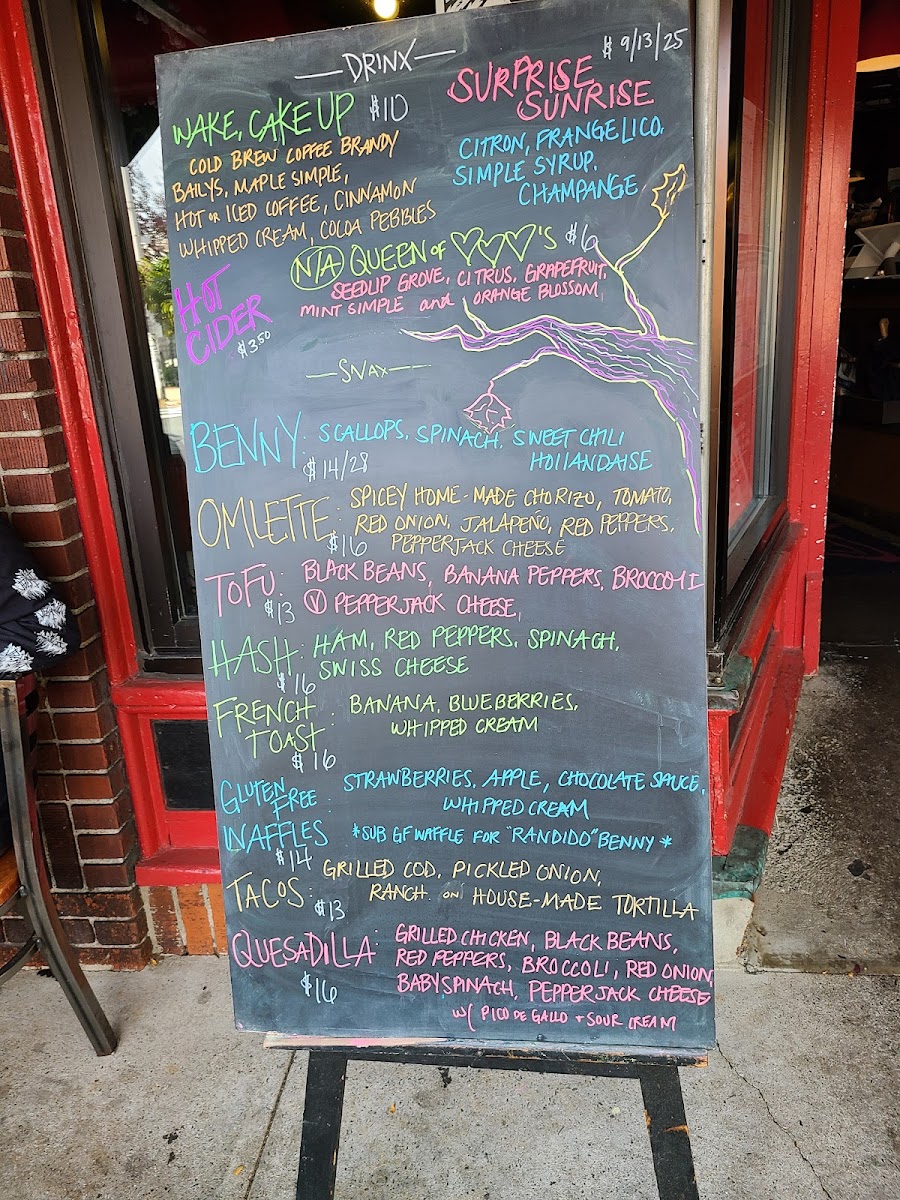 DRINX
WAKE, CAKE UP $10
COLD BREW COFFEE BRANDY
BAILYS, MAPLE SIMPLE,
HOT OR ICED COFFEE, CINNAMON
WHIPPED CREAM, COCOA PEBBLES
$ 9/13/25
SURPRISE
SUNRISE
CITRON, FRANGELICO,
SIMPLE SYRUP,
CHAMPANGE
N/A QUEEN OF ♡♡♡'S $6
SEEDLIP GROVE, CITRUS, GRAPEFRUIT,
MINT SIMPLE and ORANGE BLOSSOM,
HOT
CIDER
$3.50
SNAX
BENNY: SCALLOPS, SPINACH, SWEET CHILI
HOLLANDAISE
$14/28
OMLETTE: SPICEY HOME-MADE CHORIZO, TOMATO,
RED ONION, JALAPEÑO, RED PEPPERS,
$16 PEPPERJACK CHEESE
TOFU: BLACK BEANS, BANANA PEPPERS, BROCCOLI
$13 V PEPPERJACK CHEESE,
HASH: HAM, RED PEPPERS, SPINACH,
SWISS CHEESE
$16
FRENCH TOAST: BANANA, BLUEBERRIES,
WHIPPED CREAM
$16
GLUTEN FREE WAFFLES: STRAWBERRIES, APPLE, CHOCOLATE SAUCE,
WHIPPED CREAM
*SUB GF WAFFLE FOR "RANDIDO" BENNY*
$14
TACOS: GRILLED COD, PICKLED ONION,
RANCH ON HOUSE-MADE TORTILLA
$13
QUESADILLA: GRILLED CHICKEN, BLACK BEANS,
RED PEPPERS, BROCCOLI, RED ONION,
$16 BABY SPINACH, PEPPERJACK CHEESE
W/ PICO DE GALLO + SOUR CREAM